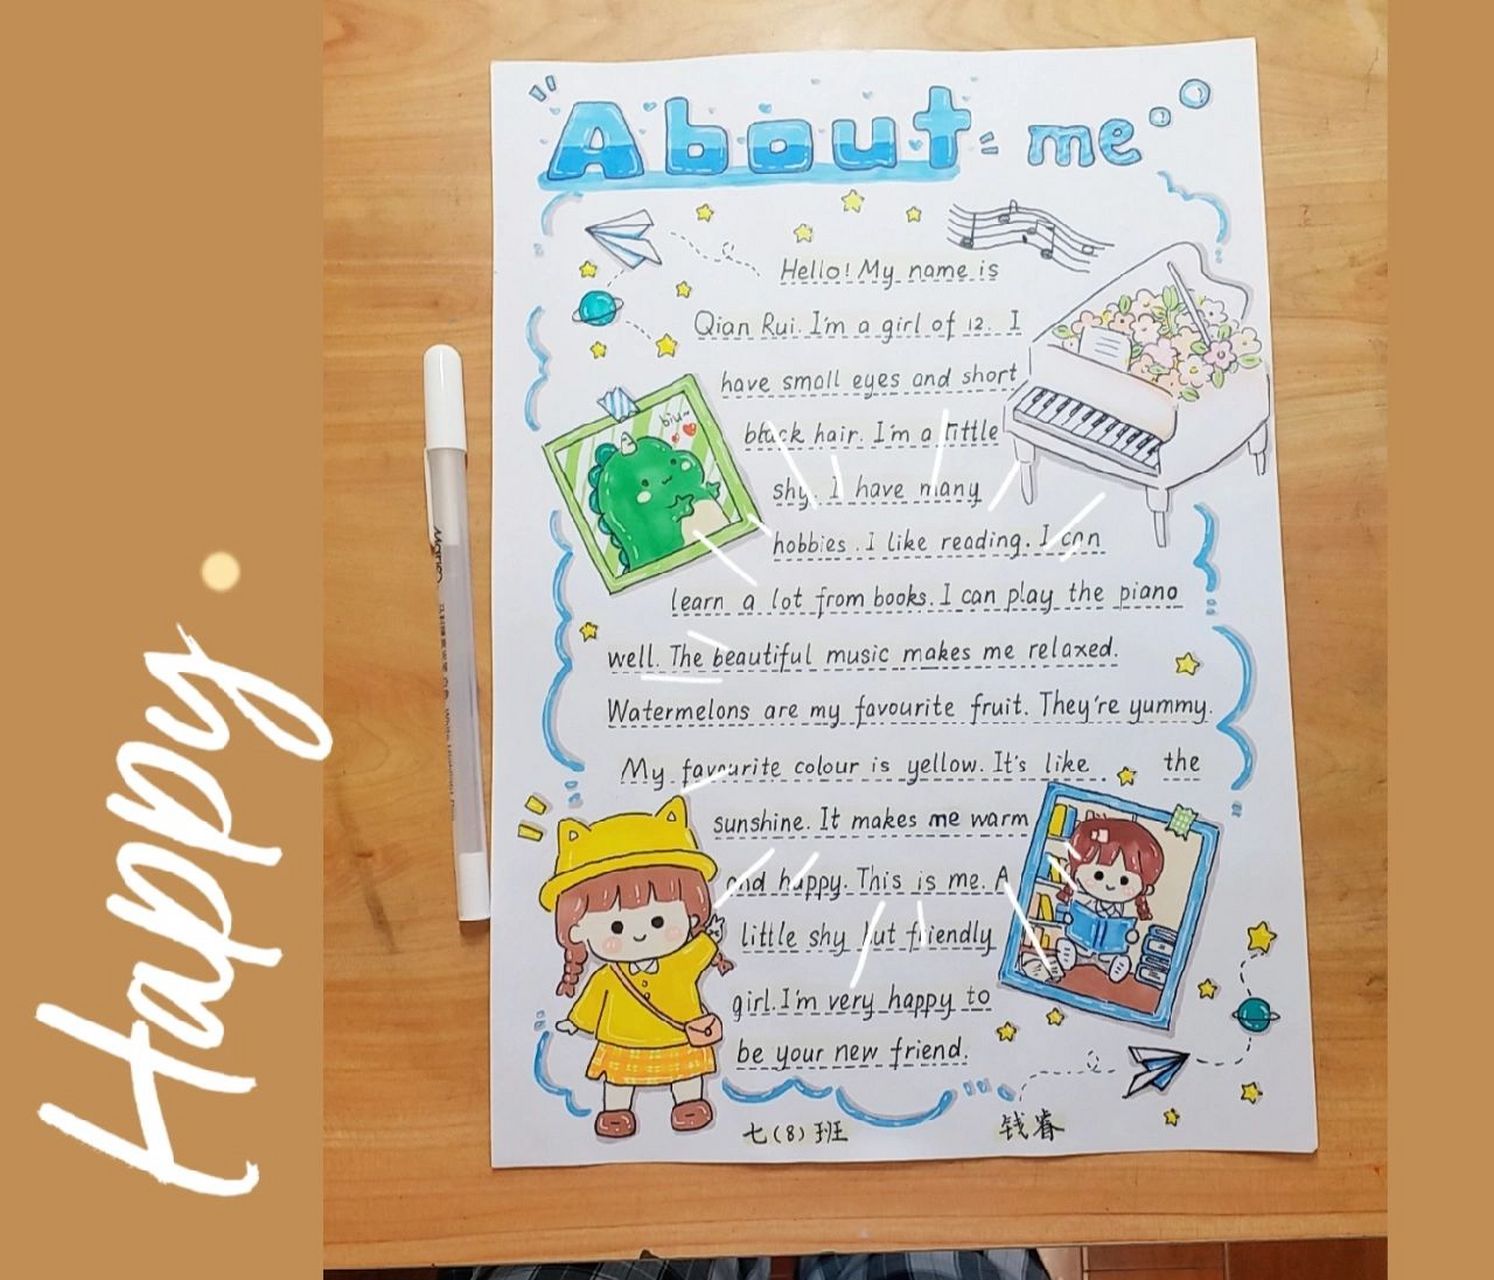 About me
Hello! My name is
Qian Rui. I'm a girl of 12. I
have small eyes and short
black hair. I'm a little
shy. I have many
hobbies. I like reading. I can
learn a lot from books. I can play the piano
well. The beautiful music makes me relaxed.
Watermelons are my favourite fruit. They're yummy.
My favourite colour is yellow. It's like the
sunshine. It makes me warm
and happy. This is me. A
little shy but friendly
girl. I'm very happy to
be your new friend.
七(8)班 钱睿
biu~
Happy.